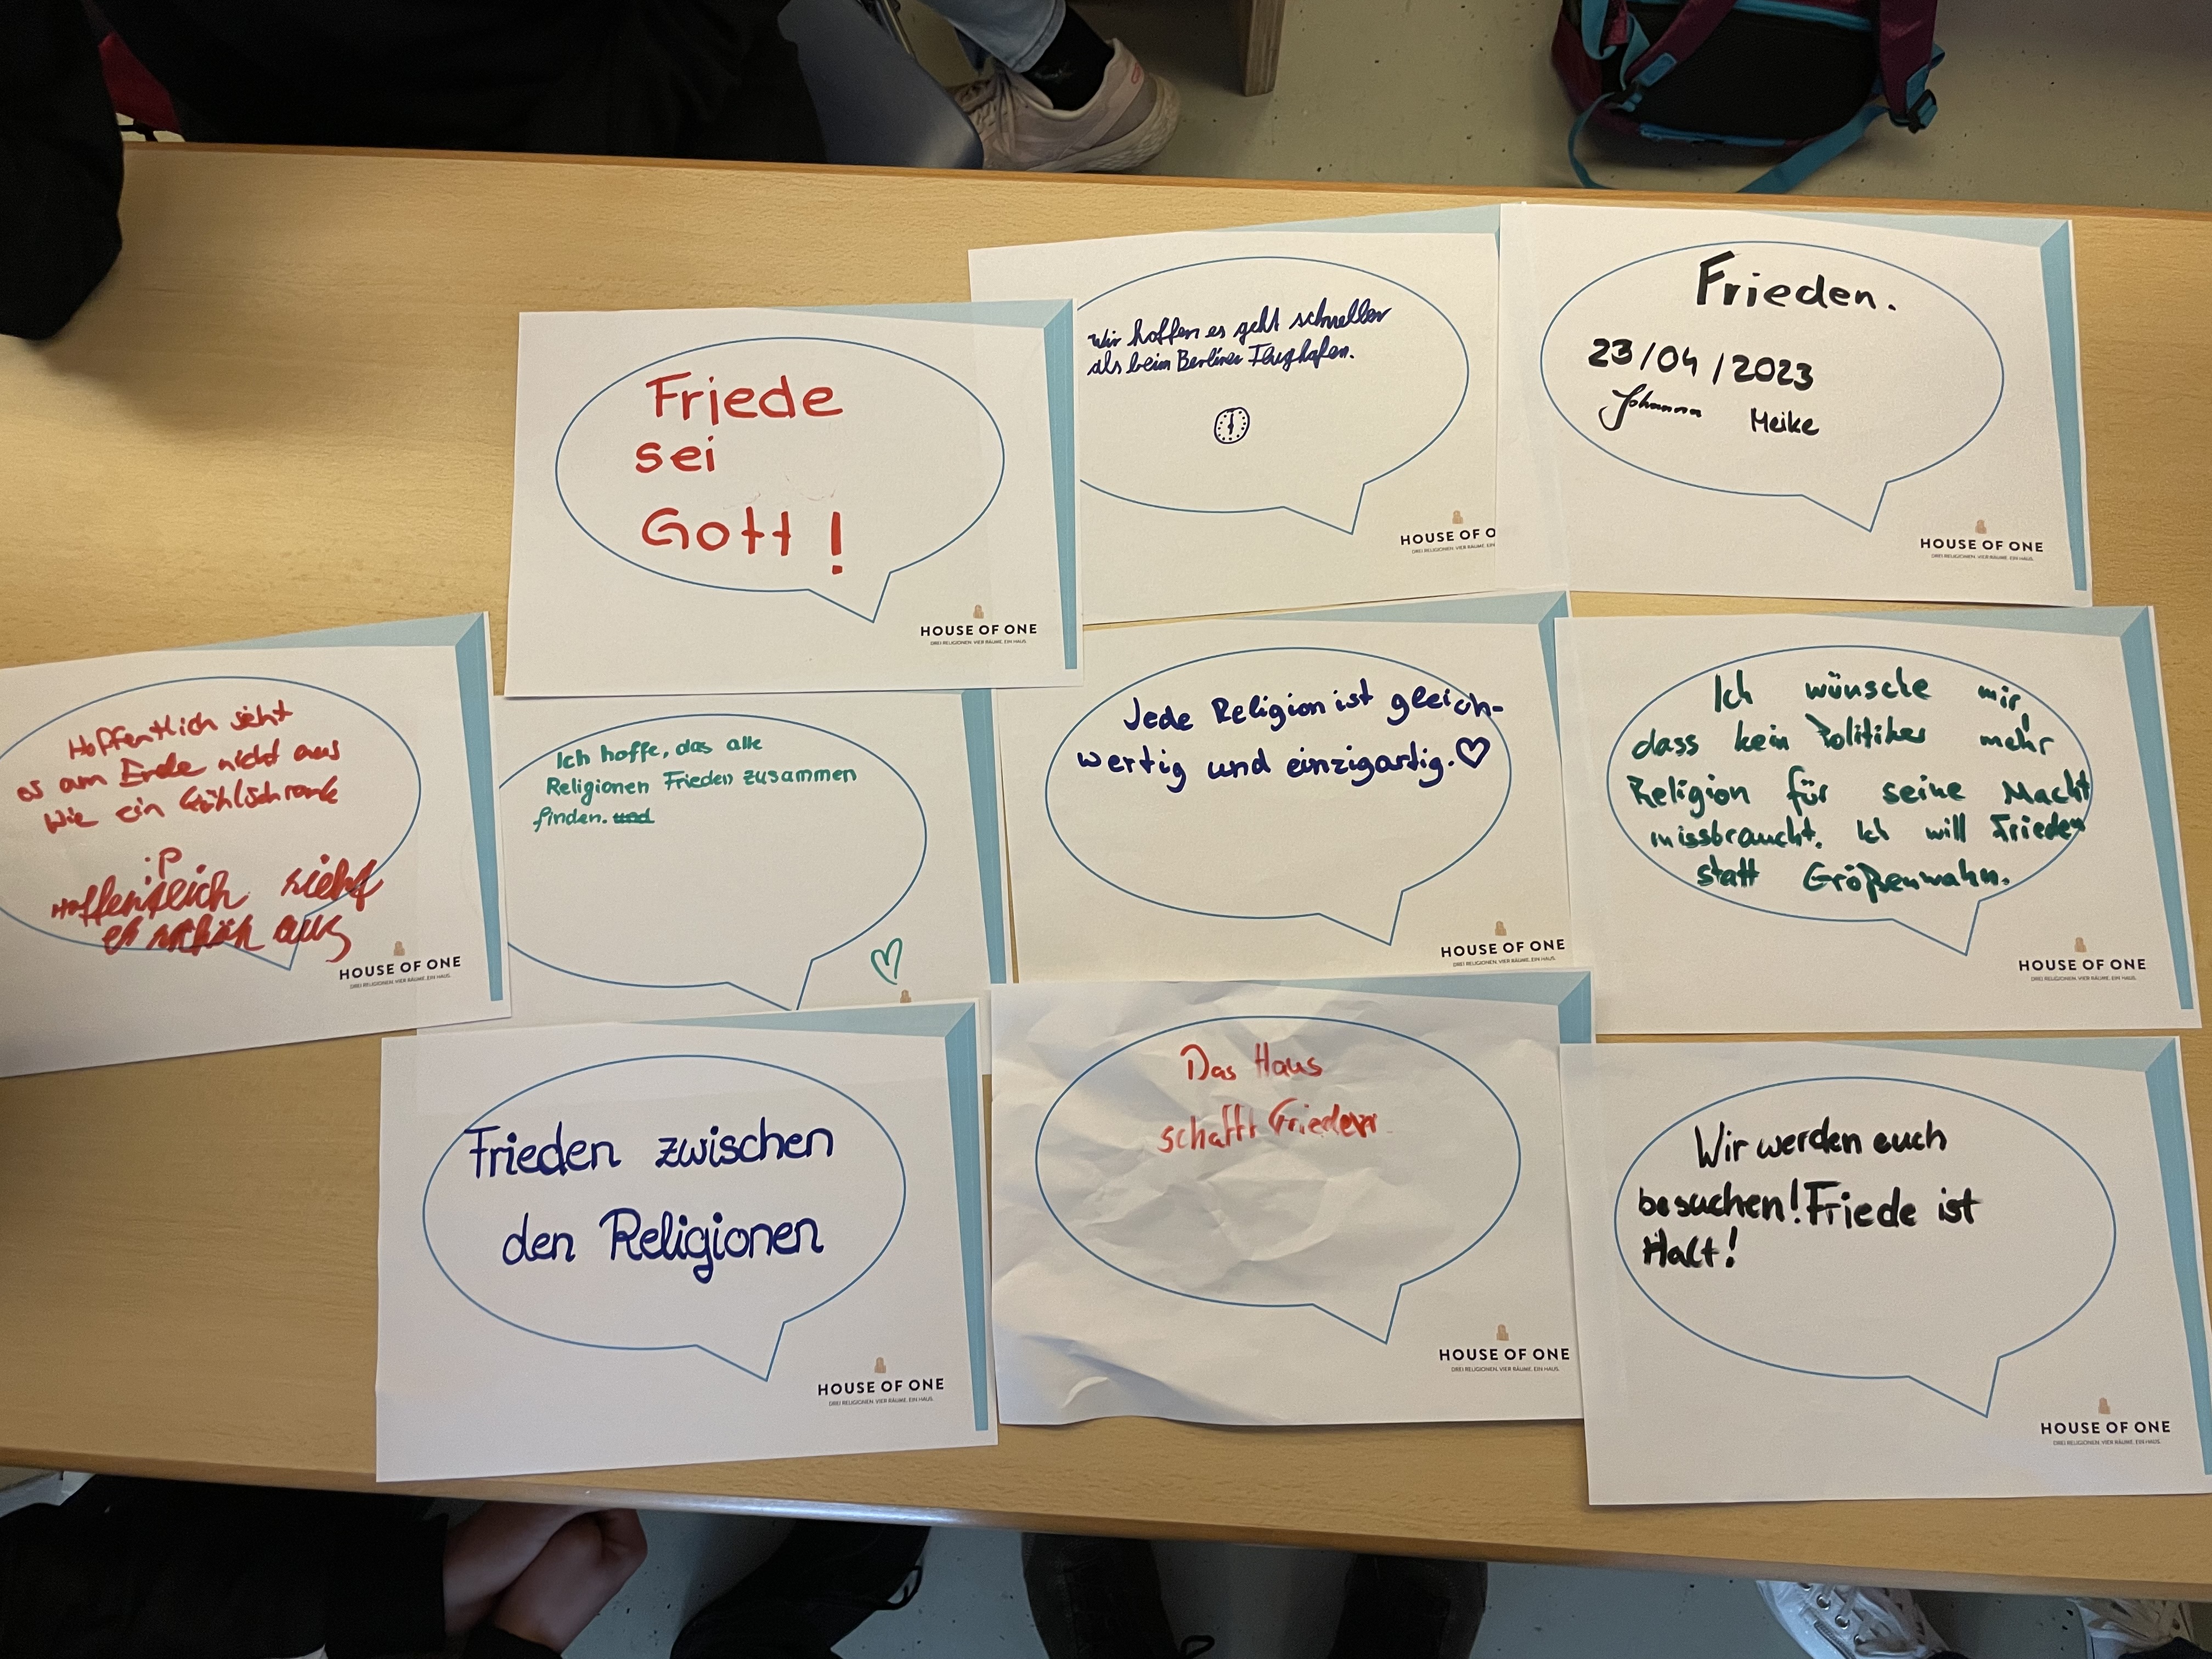 Friede
sei
Gott !
HOUSE OF ONE
DREI RELIGIONEN. VIER RÄUME. EIN HAUS.
Wir hoffen es geht schneller
als beim Berliner Flughafen.
HOUSE OF O
DREI RELIGIONEN. VIER RÄUME. EIN
Frieden.
23/04/2023
Johanna Meike
HOUSE OF ONE
DREI RELIGIONEN. VIER RÄUME. EIN HAUS.
Hoffentlich sieht
es am Ende nicht aus
wie ein Kühlschrank
:P
Hoffentlich sieht
es schön aus
HOUSE OF ONE
DREI RELIGIONEN. VIER RÄUME. EIN HAUS.
Ich hoffe, das alle
Religionen Frieden zusammen
finden. und
Jede Religion ist gleich-
wertig und einzigartig.♡
HOUSE OF ONE
DREI RELIGIONEN. VIER RÄUME. EIN HAUS.
Ich wünsche mir
dass kein Politiker mehr
Religion für seine Macht
missbraucht. Ich will Frieden
statt Größenwahn.
HOUSE OF ONE
DREI RELIGIONEN. VIER RÄUME. EIN HAUS.
Frieden zwischen
den Religionen
HOUSE OF ONE
DREI RELIGIONEN. VIER RÄUME. EIN HAUS.
Das Haus
schafft Frieden
HOUSE OF ONE
DREI RELIGIONEN. VIER RÄUME. EIN HAUS.
Wir werden euch
besuchen! Friede ist
Halt!
HOUSE OF ONE
DREI RELIGIONEN. VIER RÄUME. EIN HAUS.